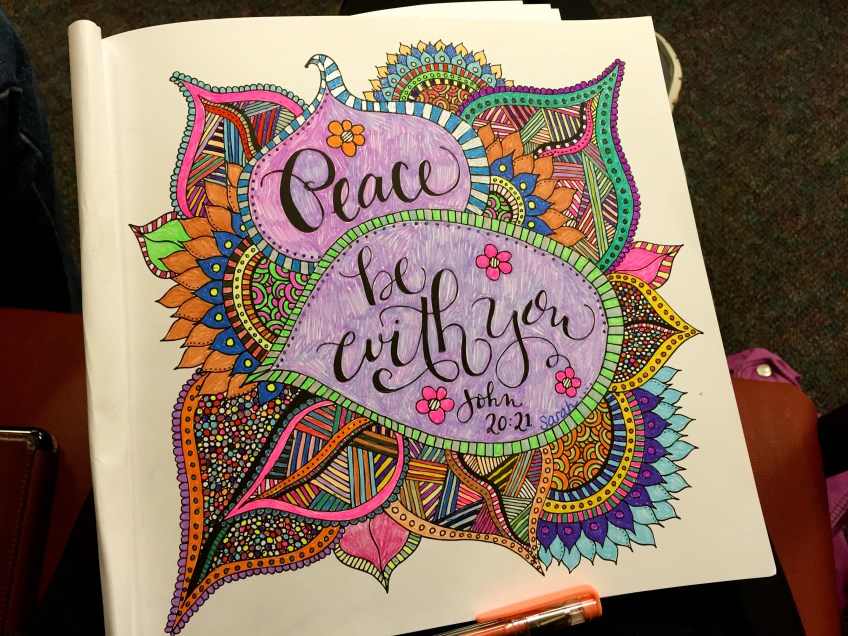 Peace
be
with you
John
20:21
sarah